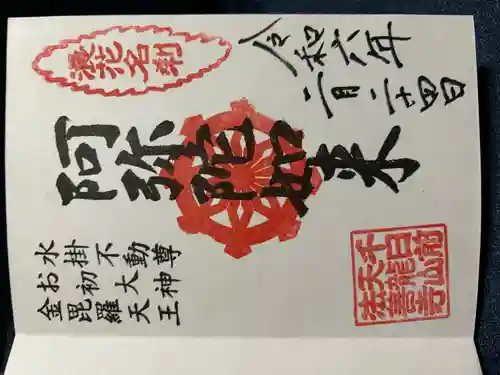 令和六年
二月二十四日
阿弥陀如来
水掛不動尊
お初大神
金毘羅天王
千日前
天龍山
法善寺